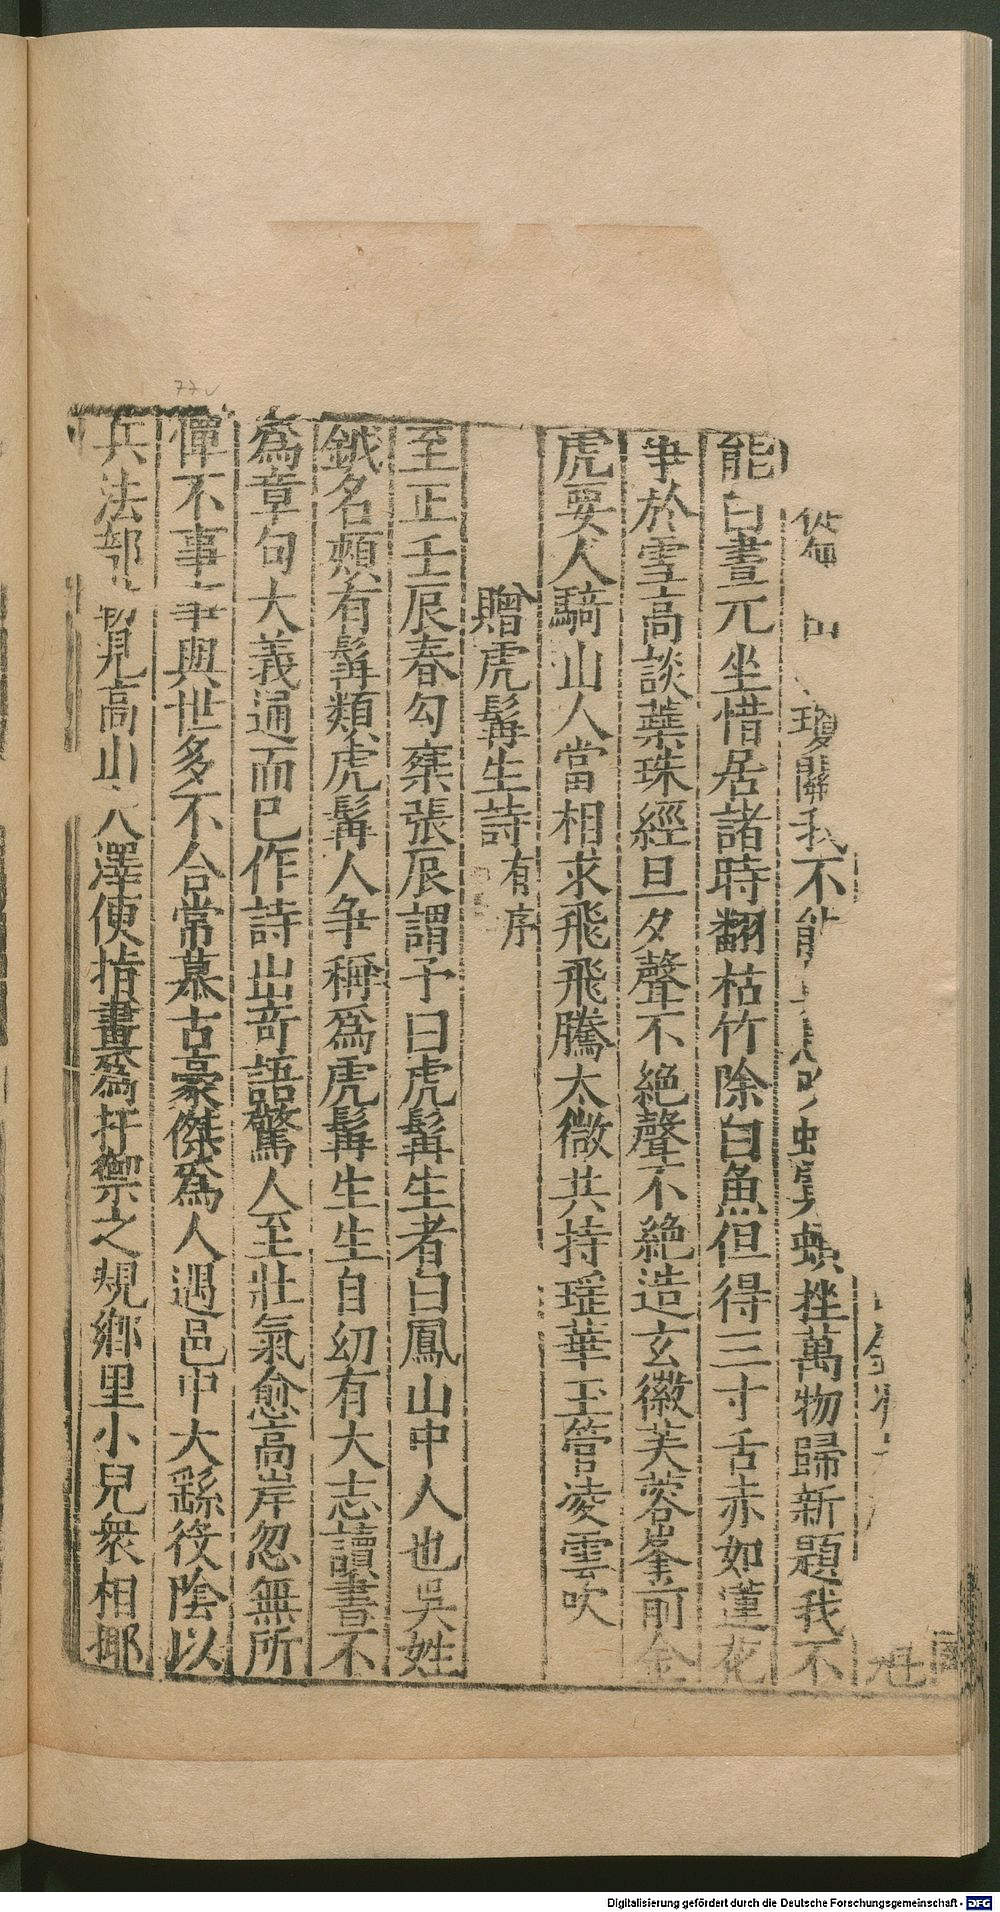 瓊關我不 挫萬物歸新題我不
能白晝兀坐惜居諸時翻枯竹除白魚但得三寸舌赤如蓮花
爭於雪高談蘂珠經旦夕聲不絶聲不絶造玄徽芙蓉峯前金
虎要人騎山人當相求飛飛騰太微共持瑶華玉管凌雲吹
贈虎髯生詩有序
至正壬辰春勾章張辰謂予曰虎髯生者白鳳山中人也吳姓
鉞名頰有髯類虎髯人争稱爲虎髯生生自幼有大志讀書不
為章句大義通而已作詩出竒語驚人至壯氣愈高岸忽無所
憚不事事與世多不合常慕古豪傑爲人遇邑中大繇役陰以
兵法部 見高山 澤便指畫爲扞禦之規鄉里小兒衆相揶
77v
Digitalisierung gefördert durch die Deutsche Forschungsgemeinschaft - DFG